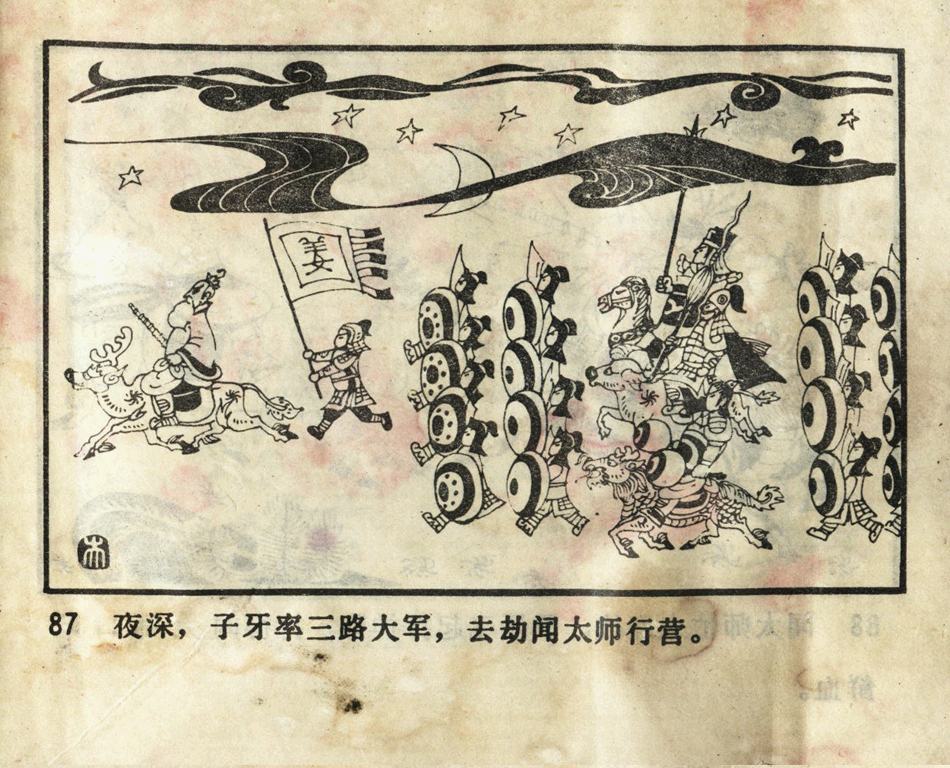 姜
87 夜深，子牙率三路大军，去劫闻太师行营。